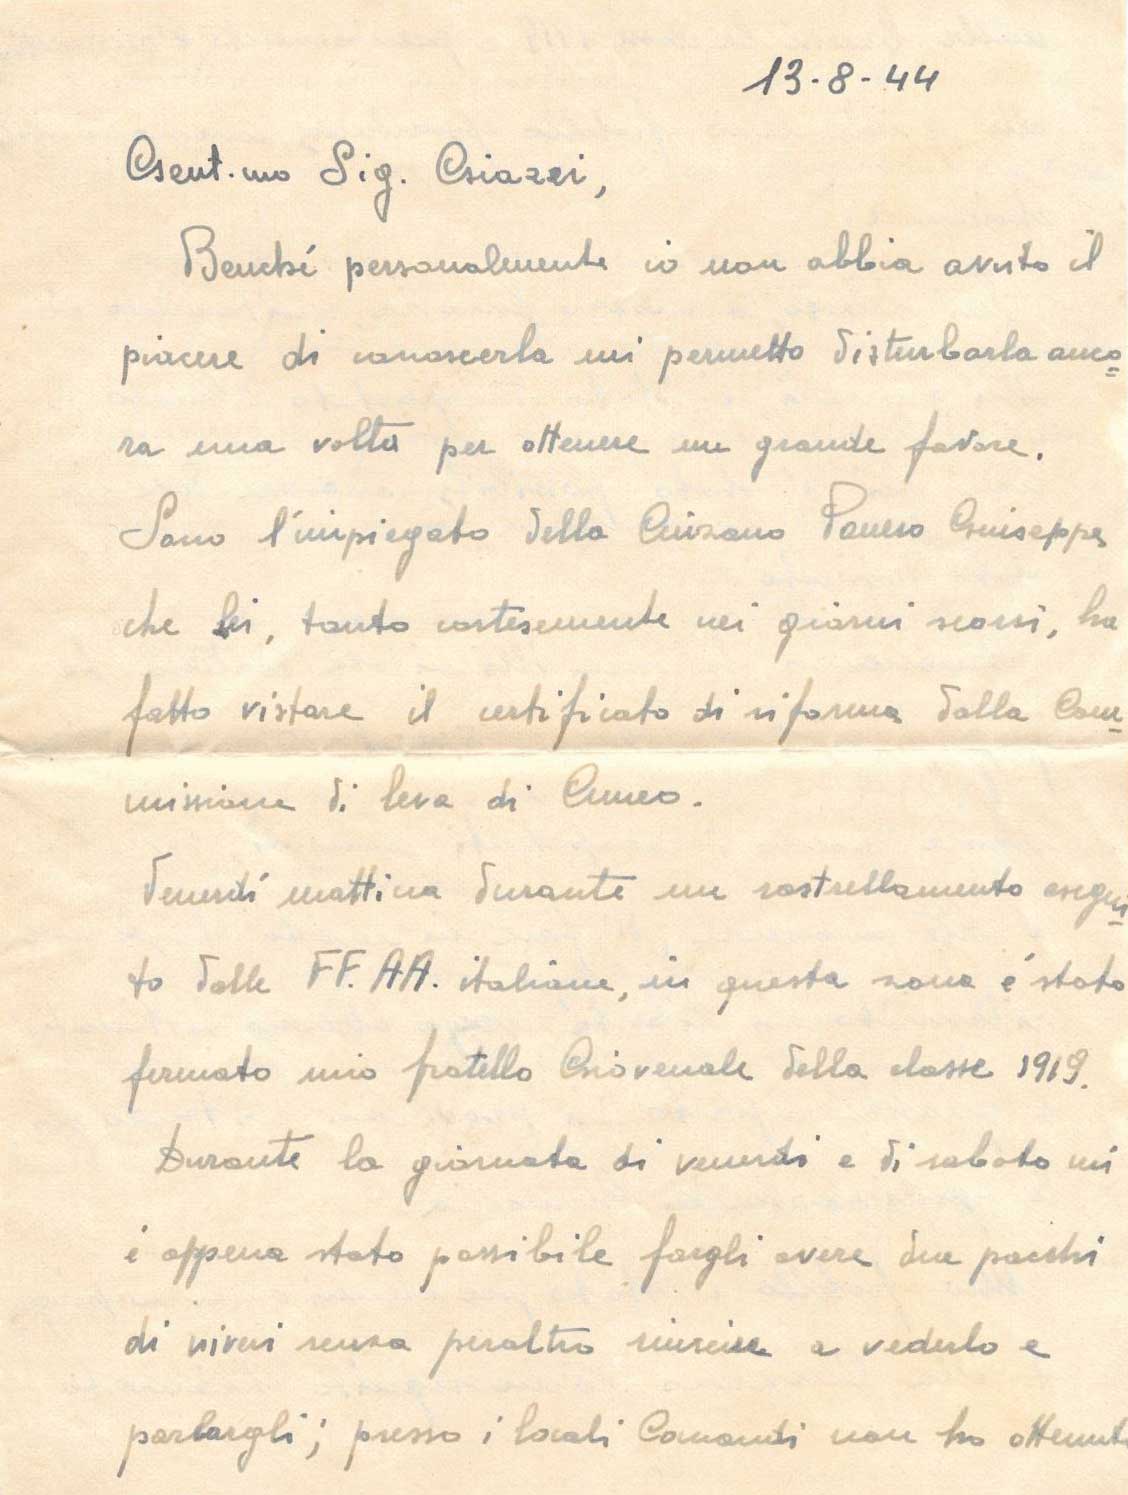 13-8-44
Gent.mo Sig. Giazzi,
Benché personalmente io non abbia avuto il
piacere di conoscerla mi permetto disturbarla anco=
ra una volta per ottenere un grande favore.
Sono l'impiegato della Cinzano Panero Giuseppe,
che Lei, tanto cortesemente nei giorni scorsi, ha
fatto vistare il certificato di riforma dalla Com=
missione di leva di Cuneo.
Venerdí mattina durante un rastrellamento esegui=
to dalle FF.AA. italiane, in questa zona é stato
fermato mio fratello Giovenale della classe 1919.
Durante la giornata di venerdi e di sabato mi
é appena stato possibile fargli avere due pacchi
di viveri senza peraltro riuscire a vederlo e
parlargli; presso i locali Comandi non ho ottenuto